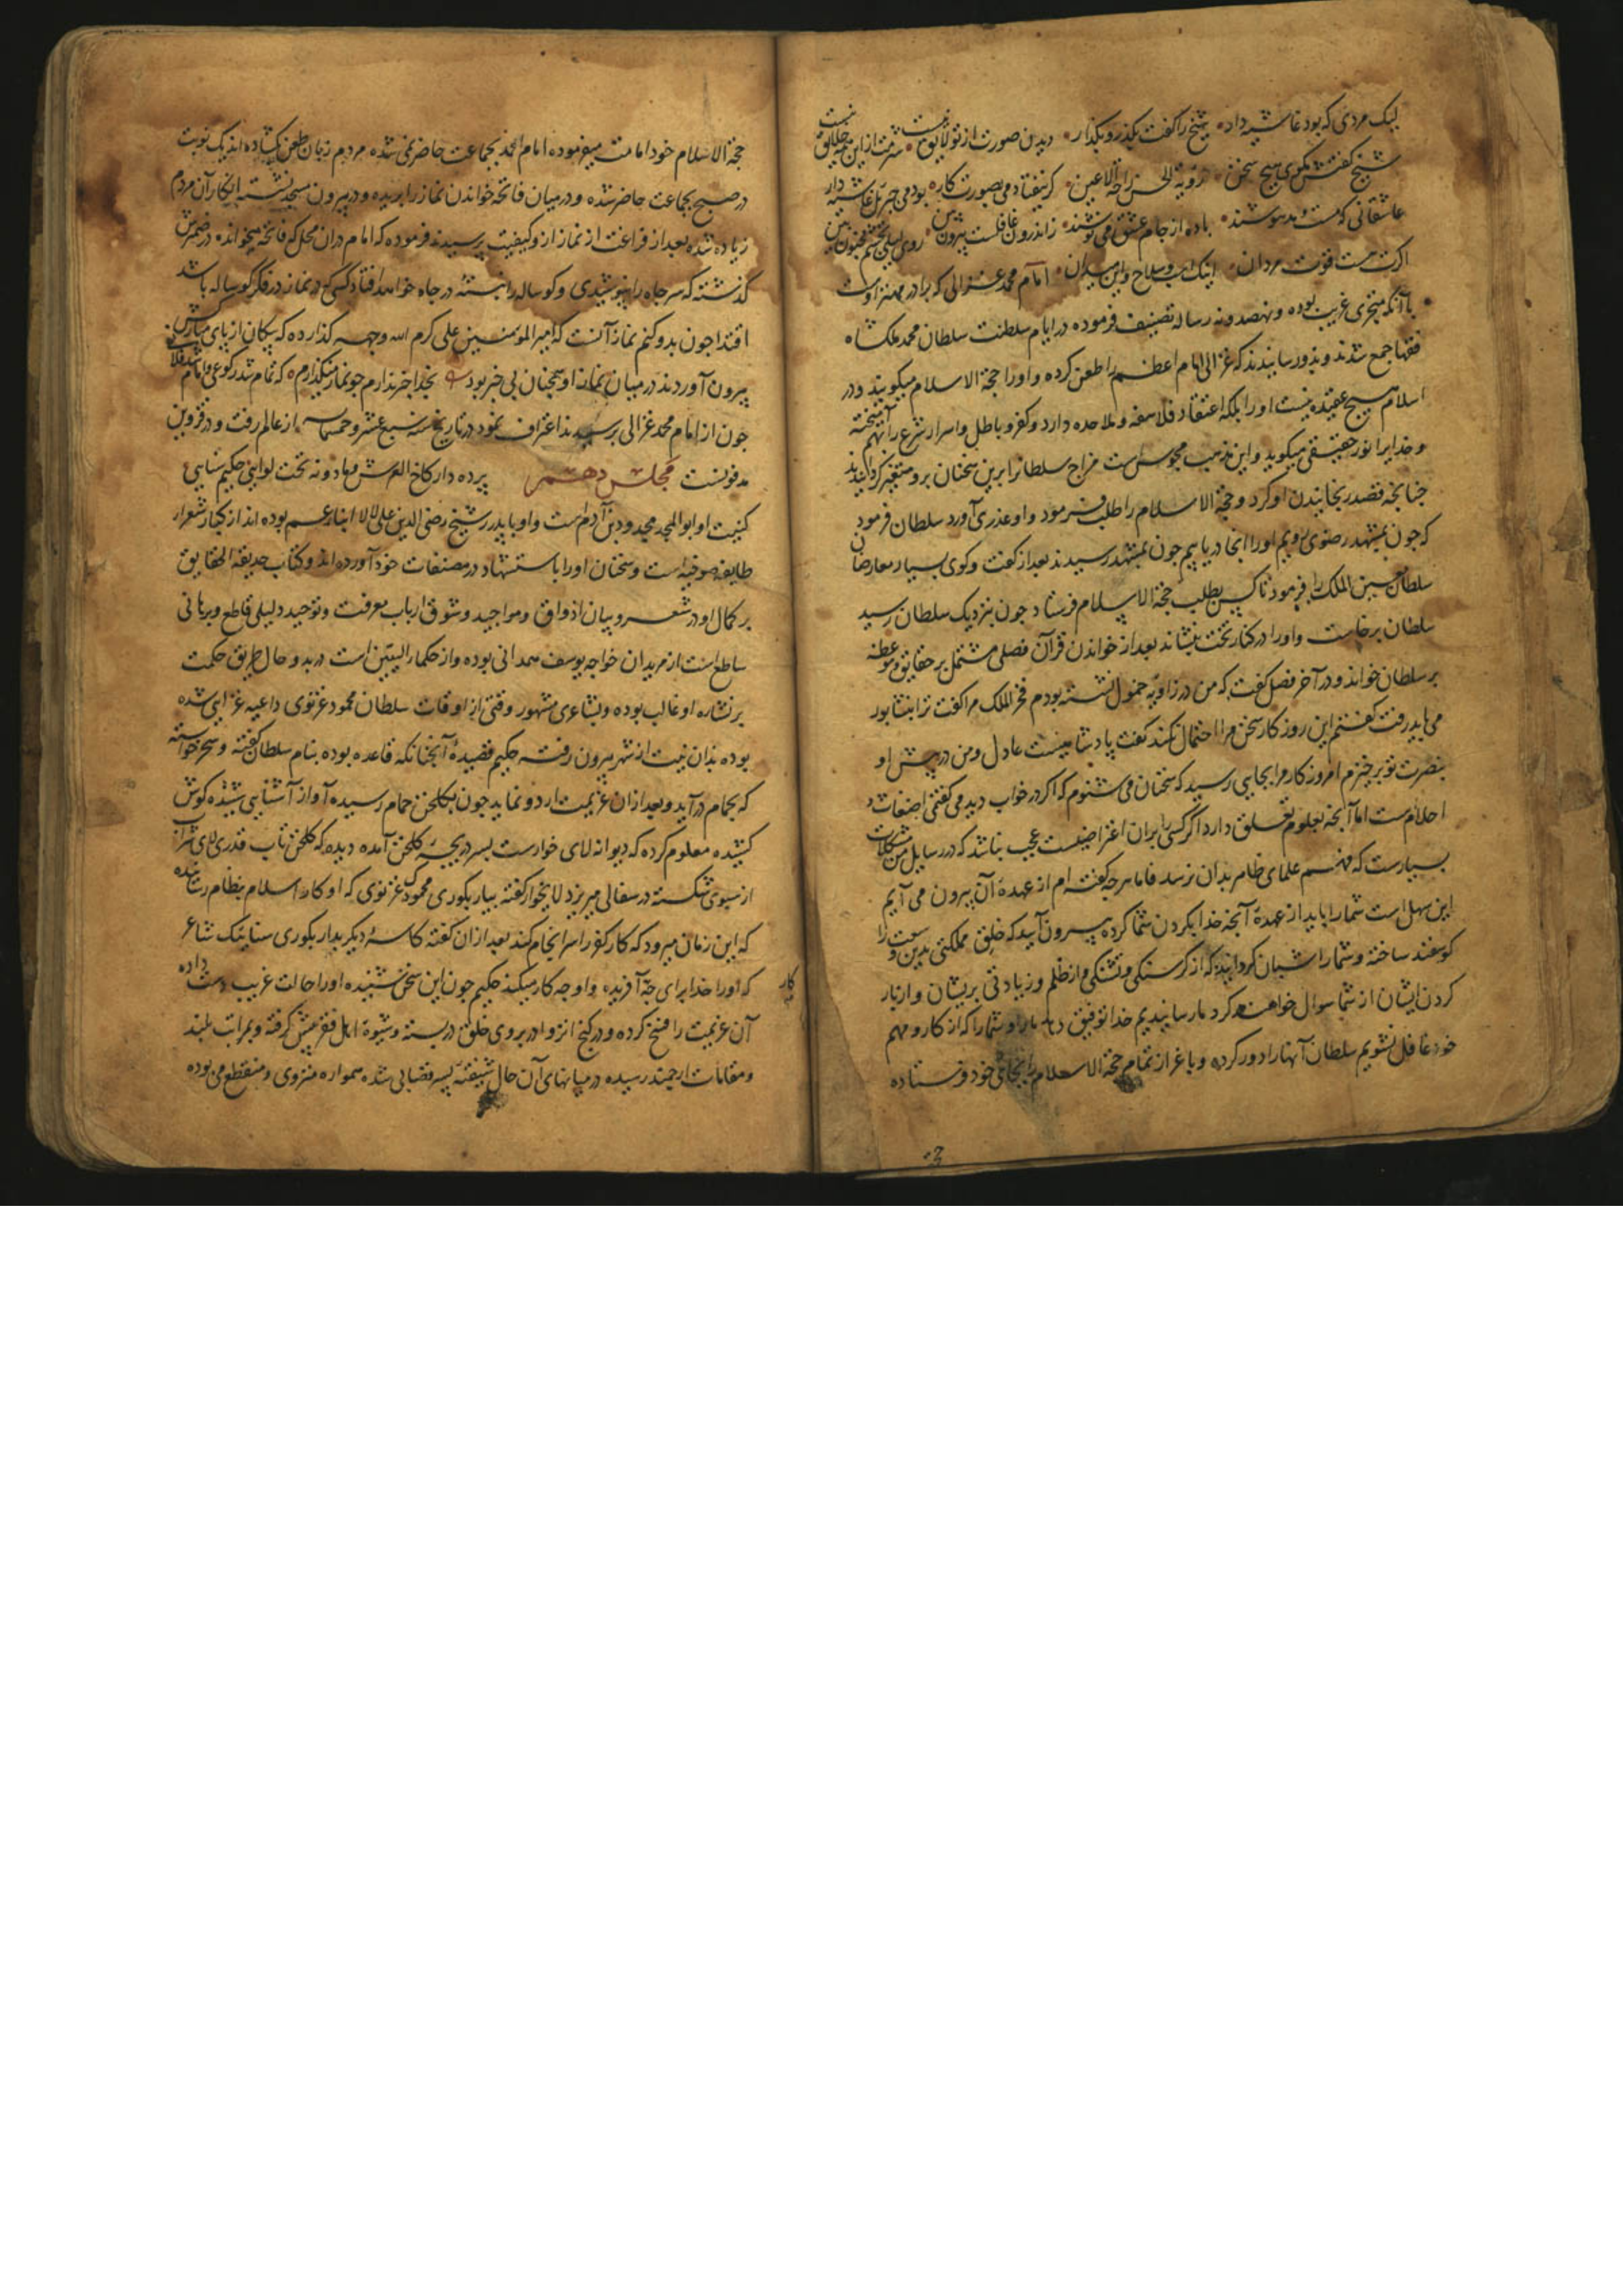 لیک مردی که بود غاشیه دار شیخ را گفت بگذر و بگذار دیدن صورت از تو لایق نیست شرمت از این همه خلایق نیست
شیخ گفتش مگوی هیچ سخن رؤیة الحسن راحة الاعین گر نیفتادمی بصورت کار بودمی جبرئیل غاشیه دار
عاشقانی که مست و مدهوشند باده از جام عشق می نوشند زاندرون غافلست بیرون بین روی لیلی بچشم مجنون بین
اگرت هست قوت مردان اینک اسب و سلاح و این میدان امام محمد غزالی که برادر مهتر اوست
با آنکه متبحری غریب بوده و نهصد و نه رساله تصنیف فرموده در ایام سلطنت سلطان محمد ملکشاه
فقها جمع شدند و بدو رسانیدند که غزالی امام اعظم را طعن کرده و او را حجة الاسلام میگویند و در
اسلام هیچ عقیده نیست او را بلکه اعتقاد فلاسفه و ملاحده دارد و کفر و باطل و اسرار شرع را بهم آمیخته
و خدا را نور حقیقی میگوید و این مذهب مجوس است مزاج سلطانرا برین سخنان برو متغیر گردانیدند
چنانچه قصد رنجانیدن او کرد و حجة الاسلام را طلب فرمود و او عذری آورد سلطان فرمود
که چون بمشهد رضوی برویم او را آنجا دریابیم چون بمشهد رسیدند بعد از گفت و گوی بسیار معارضان
سلطان معین الملک را فرمود تا کس بطلب حجة الاسلام فرستاد چون نزدیک سلطان رسید
سلطان برخاست و او را در کنار تخت بنشاند بعد از خواندن قرآن فصلی مشتمل بر حقایق و موعظه
بر سلطان خواند و در آخر فصل گفت که من در زاویه خمول نشسته بودم فخر الملک مرا گفت ترا بنشابور
می باید رفت گفتم این روزگار سخن مرا احتمال نکند گفت پادشاهیست عادل و من در پیش او
بنصرت تو برخیزم امروز کار مرا بجایی رسید که سخنان می شنوم که اگر در خواب دیدمی گفتمی اضغاث
احلام ست اما آنچه بعلوم تعلق دارد اگر کسی را بران اعتراضیست عجب نباشد که در رسایل من مشکلات
بسیارست که فهم علمای ظاهر بدان نرسد فاما هر چه گفته ام از عهده آن بیرون می آیم
این سهل است شما را باید از عهده آنچه خدا بگردن شما کرده بیرون آیید که خلق مملکتی بدین وسعت را
گوسفند ساخته و شما را شبان گردانیده که از گرسنگی و تشنگی و از ظلم و زیادتی بریشان و از بار
کردن ایشان از شما سوال خواهند کرد ما رسانیدیم خدا توفیق دهد ما را و شما را که از کار و مهم
خود غافل نشویم سلطان آنها را دور کرده و باعزاز تمام حجة الاسلام را بجای خود فرستاده
حجة الاسلام خود امامت میفرموده امام احمد بجماعت حاضر نمی شده مردم زبان طعن گشاده اند یک نوبت
در صبح بجماعت حاضر شده و در میان فاتحه خواندن نماز را بریده و در بیرون مسجد نشسته انکار آن مردم
زیاده شده بعد از فراغت از نماز ازو کیفیت پرسیدند فرموده که امام دران محل که فاتحه میخواند در ضمیرش
گذشته که سر چاه را نپوشیدی و گوساله را نبسته در چاه خواهد افتاد کسی که در نماز در فکر گوساله باشد
اقتدا چون بدو کنم نماز آنست که امیر المومنین علی کرم الله وجهه گذارده که پیکان از پای مبارکش
بیرون آوردند در میان نماز او همچنان بی خبر بود بخدا خبر ندارم چو نماز میگذارم که تمام شد رکوعی و امام شد فلانی
چون از امام محمد غزالی پرسیدند اعتراف نمود در تاریخ سنه سبع عشر و خمسمایه از عالم رفت و در قزوین
مدفونست مجلس دهم پرده دار کاخ العرش مهاد و نه تخت لوایی حکیم سنایی
کنیت او ابو المجد مجدود بن آدم است و او با پدر شیخ رضی الدین علی لالا ابناء عم بوده اند از کبار شعرای
طایفه صوفیه است و سخنان او را باستشهاد در مصنفات خود آورده اند و کتاب حدیقة الحقایق
بر کمال او در شعر و بیان اذواق و مواجید و شوق ارباب معرفت و توحید دلیلی قاطع و برهانی
ساطع است از مریدان خواجه یوسف همدانی بوده و از حکمای البستین است در بدو حال طریق حکمت
بر نشاره او غالب بوده و بشاعری مشهور وقتی از اوقات سلطان محمود غزنوی داعیه غزایی شده
بوده بدان نیت از شهر بیرون رفته حکیم قصیده آنچنانکه قاعده بوده بنام سلطان گفته و سحر خواسته
که بحمام درآید و بعد ازان عزیمت اردو نماید چون بگلخن حمام رسیده آواز آشنایی شنیده گوش
کشیده معلوم کرده که دیوانه لای خوارست بسر دریچه گلخن آمده دیده که گلخن تاب قدری لای شراب
از سبوی شکسته در سفالی میریزد لایخوار گفته بیار بکوری محمودک غزنوی که او کار اسلام بنظام رسانیده
که این زمان میرود که کار کفر را سرانجام کند بعد ازان گفته کاسه دیگر بدار بکوری سناییک شاعر
که او را خدا برای چه آفریده و او چه کار میکند حکیم چون این سخن شنیده او را حالت غریب دست داده
کار
آن عزیمت را فسخ کرده و در کنج انزوا در بروی خلق در بسته و شیوه اهل فقر پیش گرفته و بمراتب بلند
و مقامات ارجمند رسیده در میانهای آن حال شیفته پسر قصابی شده همواره منزوی و منقطع می بوده